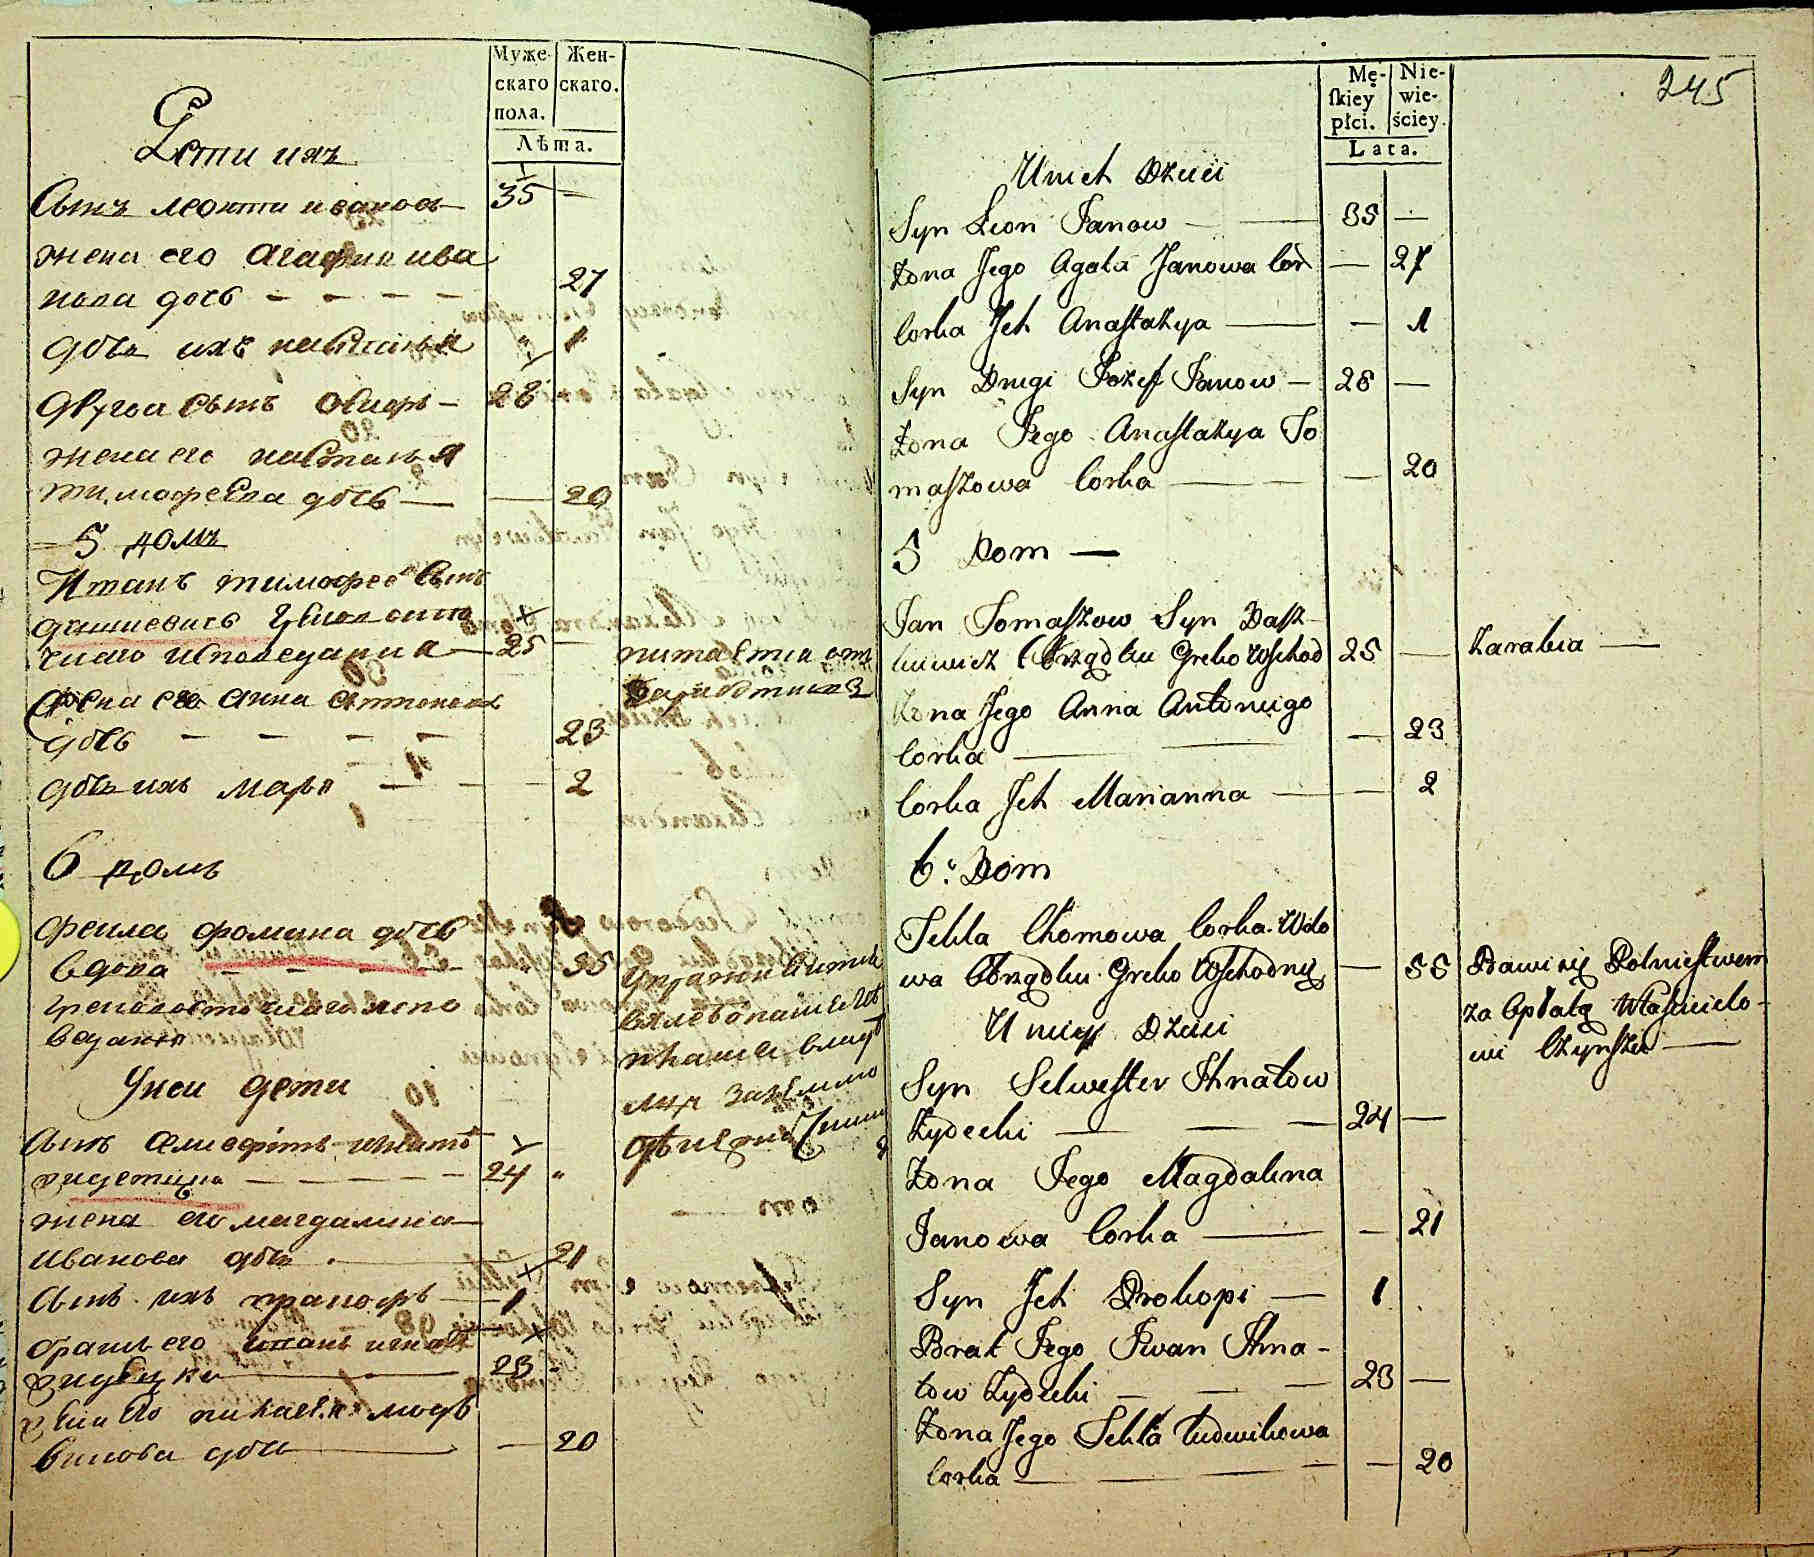 Муже-
скаго
пола.
Жен-
скаго.
Лѣта.
Дети ихъ
Сынъ леонти ивановъ 35 —
жена его агафия ива
нова дочь — — — — 27
дочь ихъ настасья " 1
другои сынъ осифъ — 28
жена его настасья
тимофеева дочь — — 20
5 домъ
Иванъ тимофеевъ сынъ
грековосто
чнаго исповедания — 25 —
питается отъ
заработков
жена его анна антонова
дочь — — — — 23
дочь ихъ марья — — — 2
6 домъ
фекла фомина дочь
вдова — — — — 55
грековосточнаго испо
ведания
У неи дети
сынъ селивестръ игнатовъ
24 "
жена его магдалина
иванова дочь 21
сынъ ихъ прокофъ — 1
братъ его иванъ игнатов
23 -
жена его
дочь — — 20
245
Mę-
skiey
płci.
Nie-
wie-
ściey.
Lata.
U nich Dzieci
Syn Leon Janow — — 35 —
Żona Jego Agata Janowa Cór — 27
Corka Jch Anastazya — — 1
Syn Drugi Jozef Janow — 28 —
Żona Jego Anastazya To
maszowa Corka — — — — 20
5 Dom —
Jan Tomaszow Syn Dasz-
kiewicz Obrządku Greko Wschod 25 — Zarabia —
Żona Jego Anna Antoniego
Corka — — — — 23
Corka Jch Marianna — — 2
6. Dom
Tekla Chomowa Corka Wdo
wa Obrządku Greko Wschodniy — 55 Bawi się Rolnictwem
za Opłatą Właścicielo-
wi Czynszu —
U niey Dzieci
Syn Selwester Jhnatow
Żydecki — — — 24 —
Żona Jego Magdalena
Janowa Corka — — 21
Syn Jch Prokopi — 1
Brat Jego Jwan Jhna-
tow Żydecki — — — 23 —
Żona Jego Tekla Ludwikowa
Corka — — — — — 20